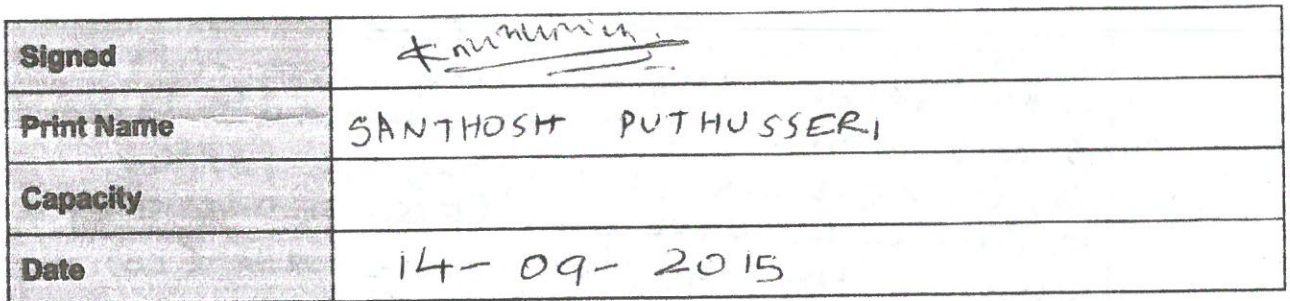 Signed
Print Name SANTHOSH PUTHUSSERI
Capacity
Date 14-09-2015